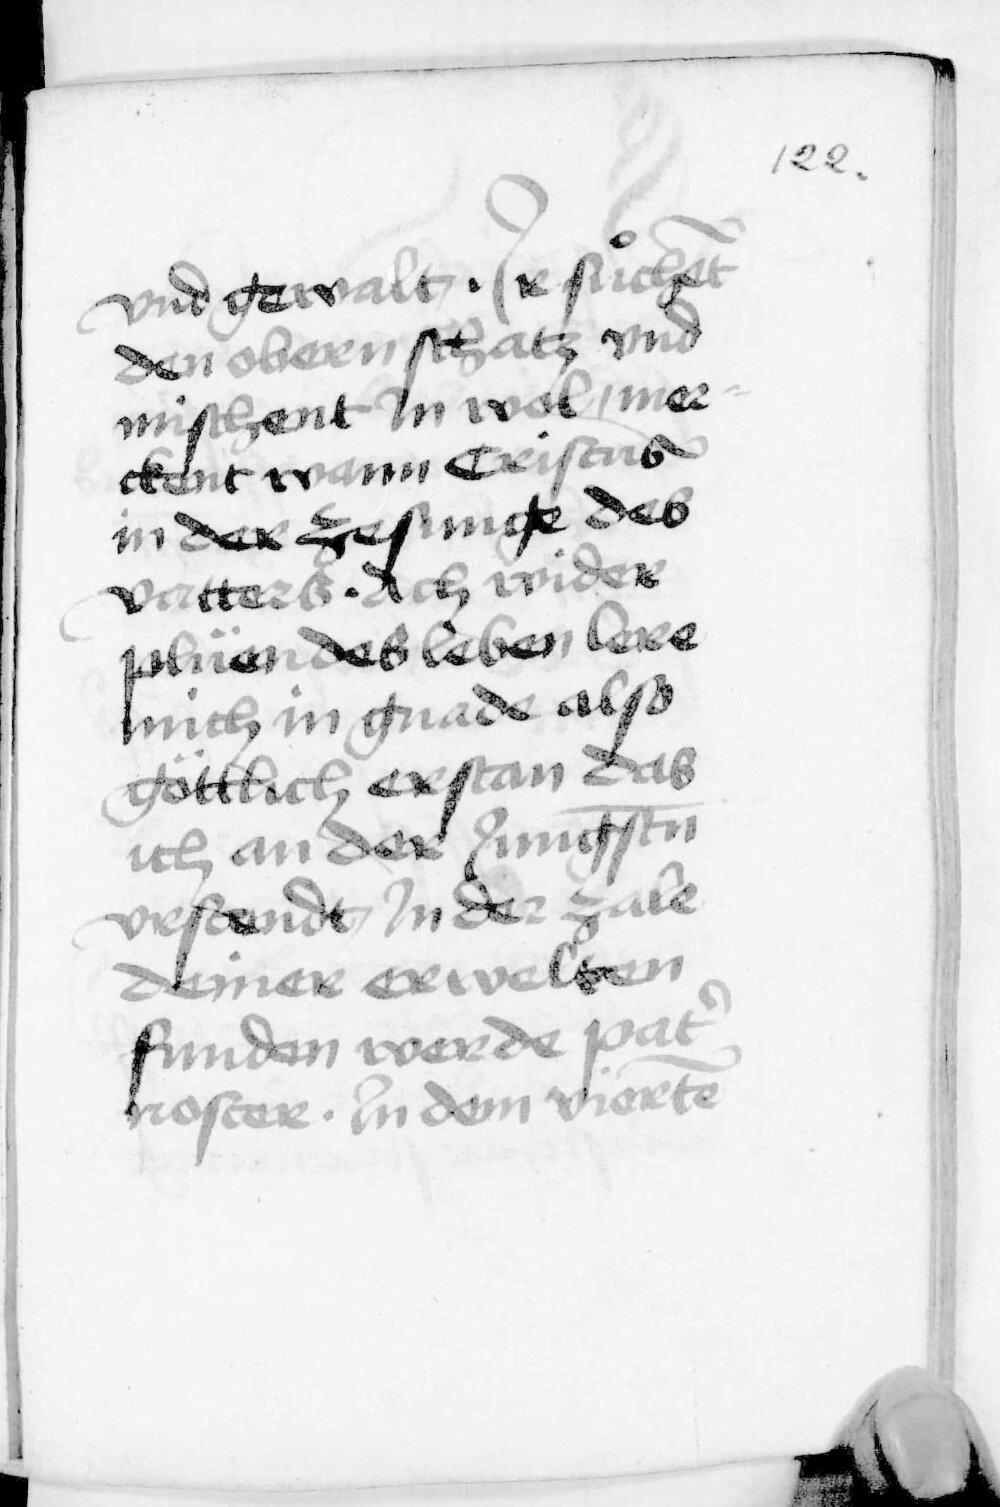 122.
vnd gewalt . Ir sůchēt
den obern schatz vnd
mischent In wol / mer=
ckent wann Cristus
in der zesmige des
vatters . Ach wider
plüendes leben lere
mich in gnade also
göttlich erstan das
ich an der Jungstn̄
vrstendt In der zale
deiner erwelten
funden werde pat̾
noster . In dem viertē